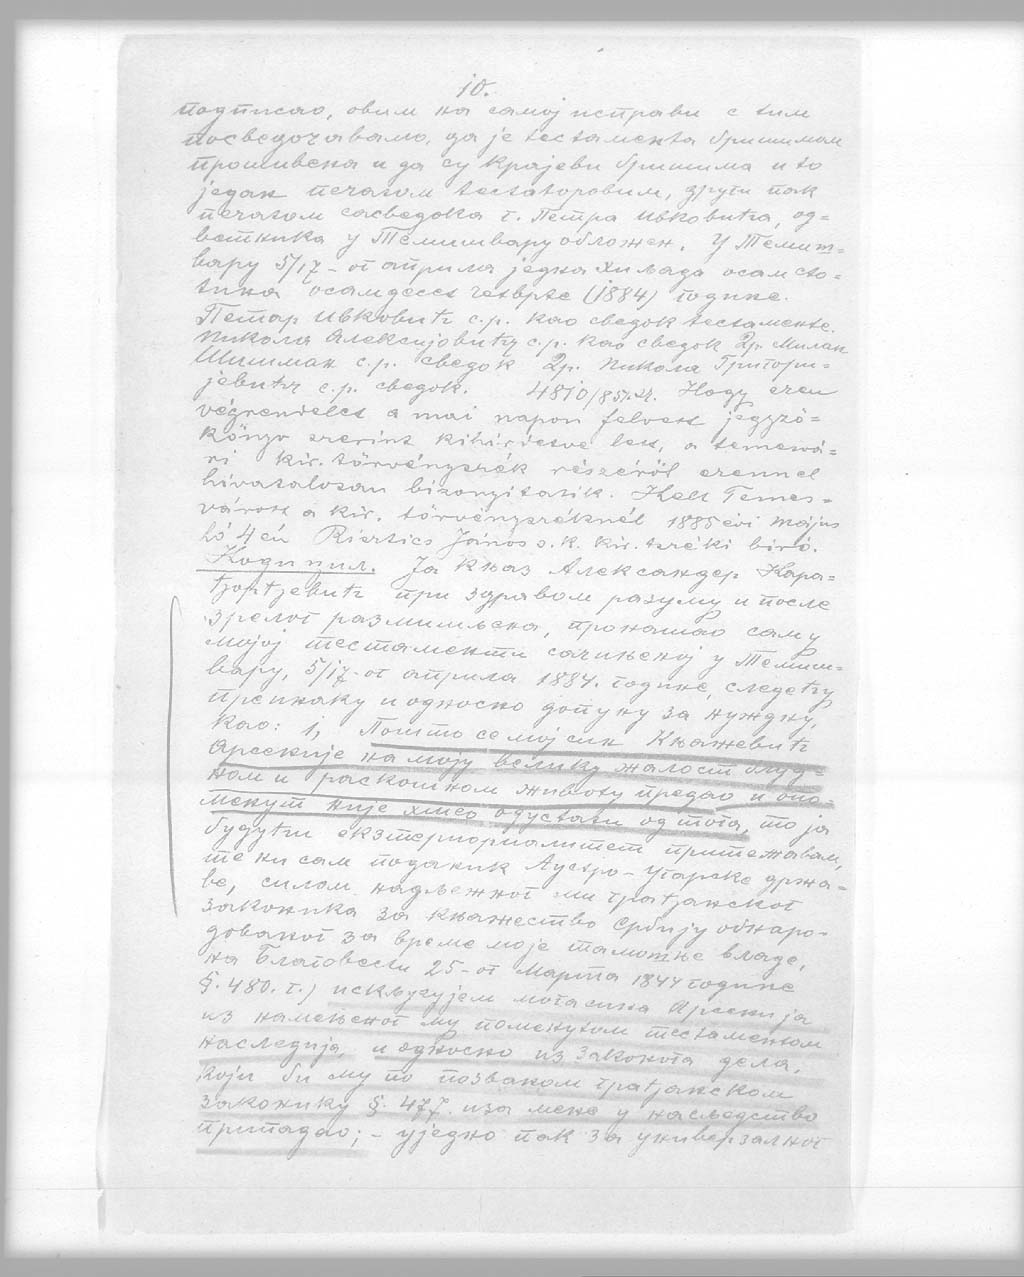 10.
подписао, овим на самој исправи с тим
посведочавамо, да је тестаменат бришимом
прошивена и да су крајеви бришима и то
један печатом тестаторовим, други пак
печатом сасведока г. Петра Ивковића, од=
ветника у Темишвару обложен. У Темиш=
вару 5/17-ог априла једна хиљада осамсто=
тина осамдесет четврте (1884) године.
Петар Ивковић с.р. као сведок тестамента.
Никола Алексијовић с.р. као сведок Др. Милан
Шишман с.р. сведок Др. Никола Григори=
јевић с.р. сведок. 4810/85 Hogy ezen
végrendelet a mai napon felvett jegyző=
könyv szerint kihirdetve lett, a temesvá=
ri kir. törvényszék részéről ezennel
hivatalosan bizonyitatik. Kelt Temes=
várott a kir. törvényszéknél 1885 évi május
hó 4én János s.k. kir. tszéki biró.
Кодицил. Ја Књаз Александер Кара=
ђорђевић при здравом разуму и после
зрелог размишљена, пронашао сам у
мојој тестаменти сачињеној у Темиш=
вару, 5/17-ог априла 1884. године, следећу
преинаку и односно допуну за нуждну,
као: 1, Пошто се мој син Књажевић
Арсеније на моју велику жалост блуд=
ном и раскошном животу предао и опо=
менут није хтео одустати од тога, то ја
будући екстериоријалитет притежавам,
те ни сам поданик Аустро-Угарске држа=
ве, силом надлежног ми грађанског
законика за књажество Србију обнаро=
дованог за време моје тамошње владе,
на Благовести 25-ог Марта 1844 године
§. 480. т.) искључујем мога сина Арсенија
из намењеног му поменутом тестаментом
наследија, и односно из законога дела,
који би му по позваном грађанском
законику §. 477. иза мене у насљедство
припадао; - уједно пак за универзалног